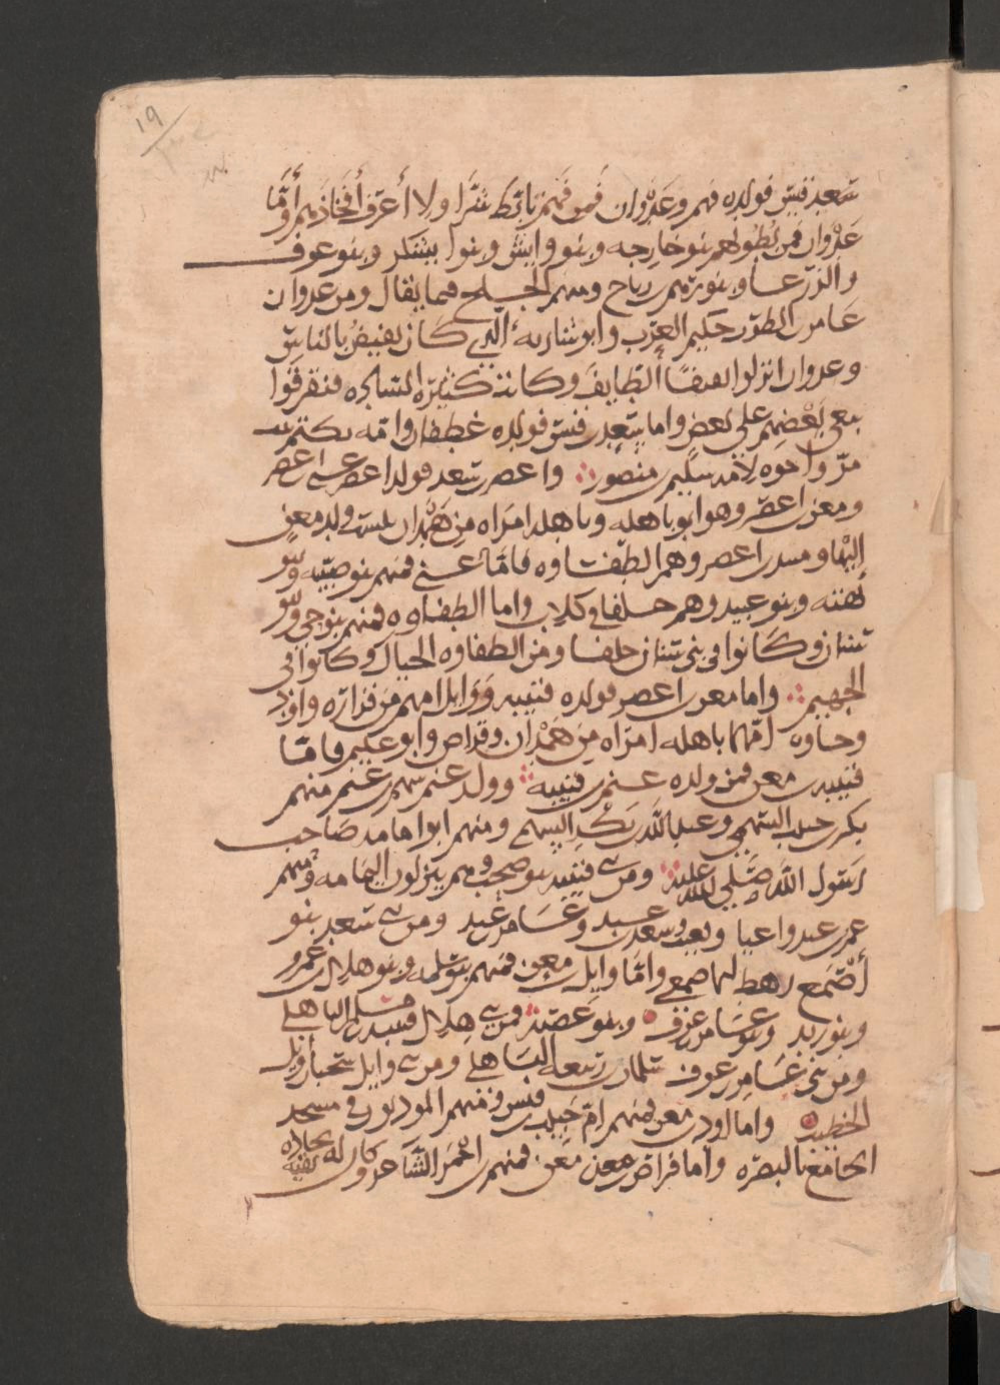 ١٩
سعد بن قيس فولده فهم وعدوان فمن فهم تابط شرا ولا أعرف أفخاذهم وأما
عدوان فمن بطونهم بنو خارجه وبنو وابش وبنوا يشكر وبنو عوف
عامر بن الظرب حكيم العرب وابو سياره الذي كان يفيض بالناس
وعدوان انزلوا ثقيفا الطايف وكانت كثيره المشايخ فتفرقوا
بغي بعضهم على بعض واما سعد بن قيس فولده غطفان وامه تكتم بنت
مر واخوه لامه سليم بن منصور واعصر بن سعد فولد اعصر غني بن اعصر
ومعن بن اعصر وهو ابو باهله وباهله امراه من همدان
اعصر وهم الطفاوه فاما غني فمنهم بنو ضبينه وبنو
بهثه وبنو عبيد وهم حلفا في كلاب واما الطفاوه فمنهم بنو جي وبنو
سنان وكانوا في بني سنان حلفا ومن الطفاوه الحبال وكانوا في
الجهيم واما معن بن اعصر فولده قتيبه ووايل امهم من فزاره واود
وجاوه امهما باهله امراه من همدان وفراص وابو عليم فاما
قتيبه بن معن فمن ولده غنم بن قتيبه وولد غنم سهم بن غنم منهم
بكر بن حبيب السهمي وعبد الله بن بكر السهمي ومنهم ابو امامه صاحب
رسول الله صلى الله عليه ومن بني قتيبه بنو صحب وهم ينزلون اليمامه ومنهم
عمرو بن عبد واعيا وسعد بن عبد وعامر بن عبد ومن بني سعد بنو
أصمع رهط الاصمعي واما وايل بن معن فمنهم بنو سلمه وبنو هلال بن عمرو
وبنو زيد وبنو عامر بن عوف وبنو عصيه فمن بني هلال قتيبه بن مسلم الباهلي
ومن بني عامر بن عوف سلمان بن ربيعه الباهلي ومن بني وايل سحبان وايل
الخطيب واما اود بن معن فمنهم ام حبيب بن قيس ومنهم الموذنون في مسجد
الجامع بالبصره واما فراص بن معن فمنهم بن احمر الشاعر وكان له